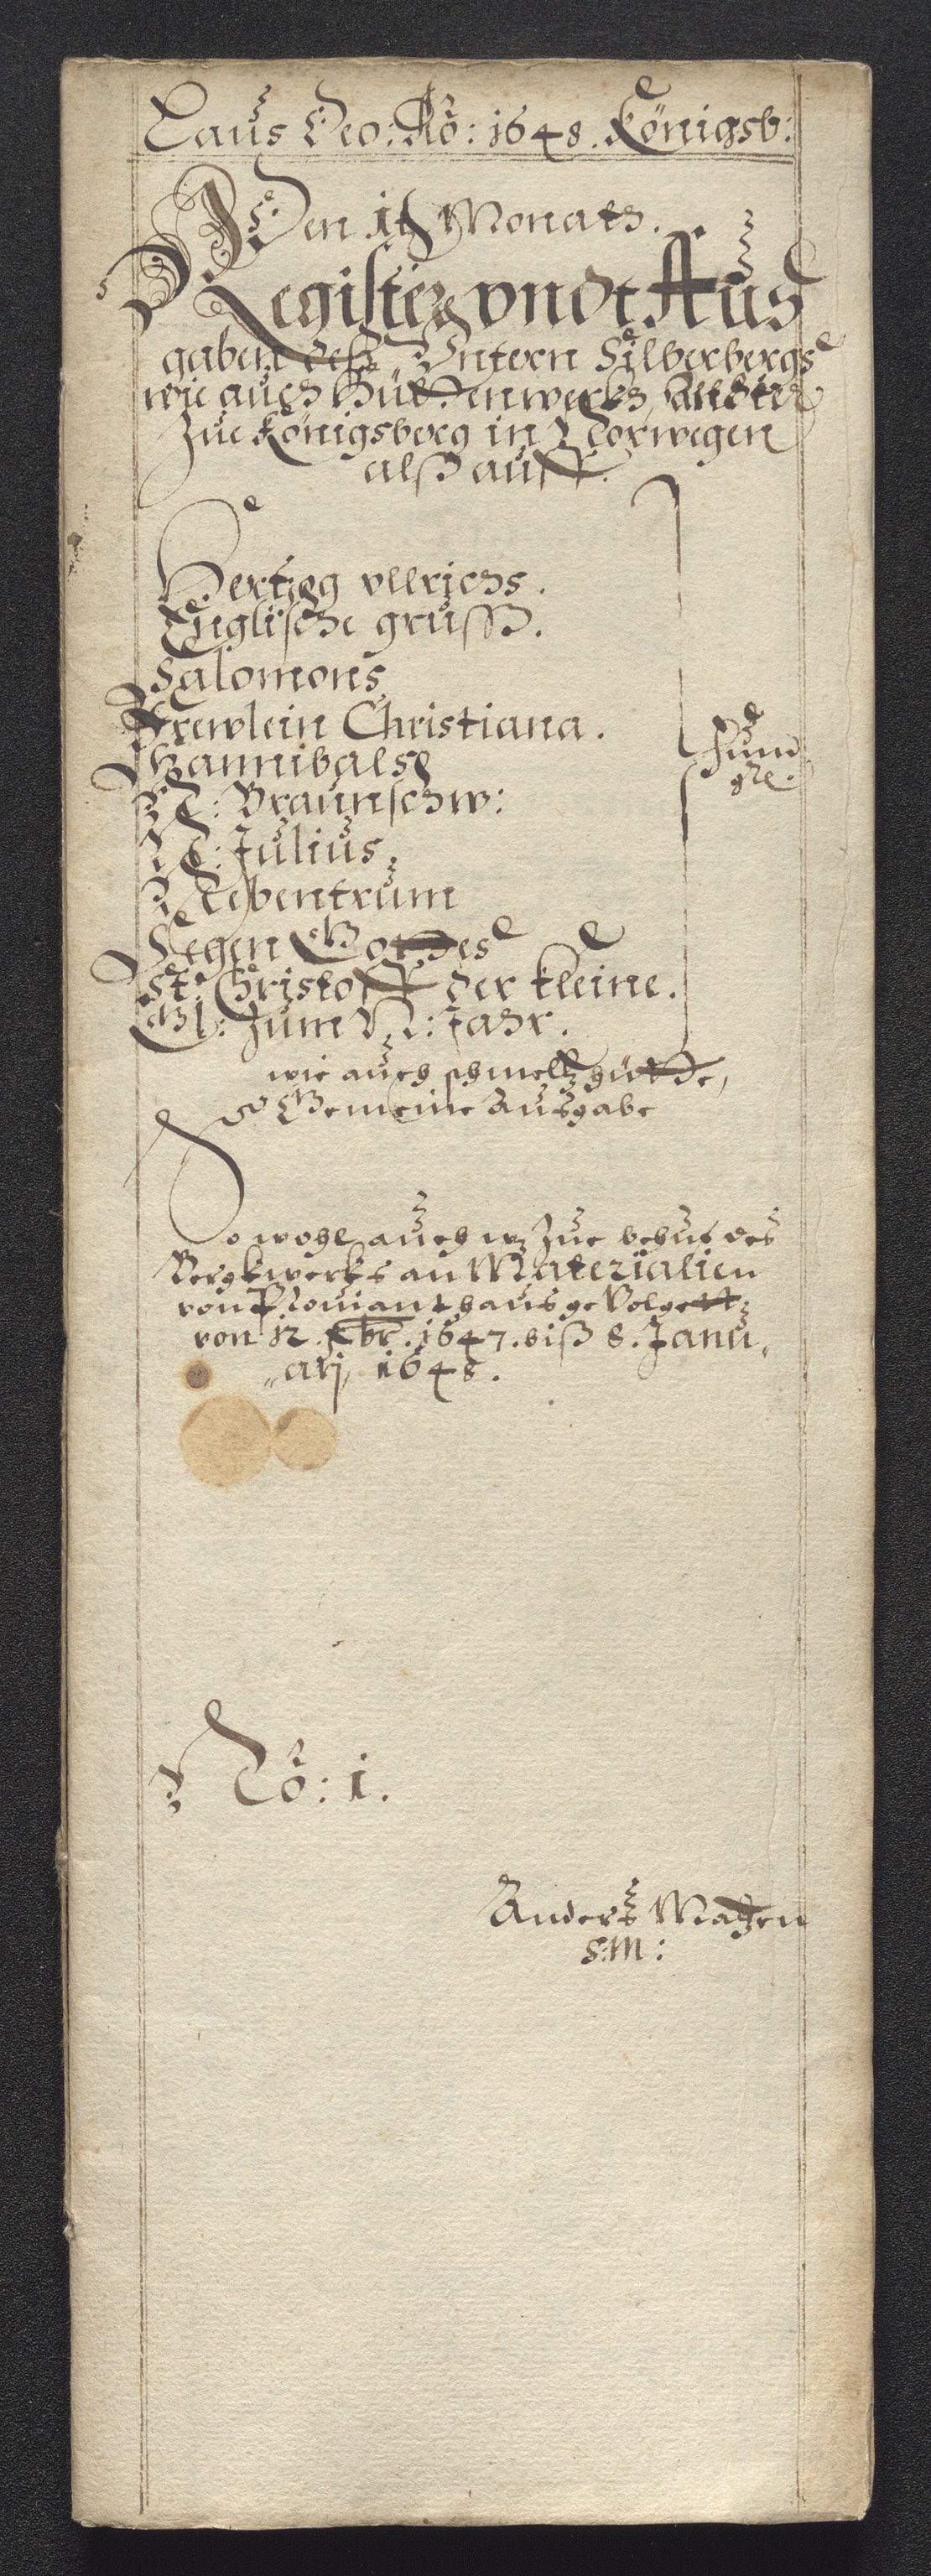 Laus Deo: Aõ: 1648. Königsb:
Den 1t Monats.
Register vndt Aus
gaben deß Vntern Silberbergs
wie auch Hüttenwercks allhier
Zue Königsberg in Norwegen
alß auff.
Hertzog vllrichs.
Englische gruß.
Salomons
Frewlein Christiana.
Hannibals
N: Braunschw:
N: Julius.
Rebentrum
Segen Gottes
St. Christoff der kleine.
Gl: Zum N: Jahr.
Fund
gr.
wie auch schmeltzhütte,
Gemeine Ausgabe
So wohl auch wz Zue behuf des
Bergkwerks an Materialien
von Proviant haus gevolgett
von 12. Xbr. 1647. biß 8. Janu„
„arj, 1648.
No: 1.
Anders Matzen
S:M: